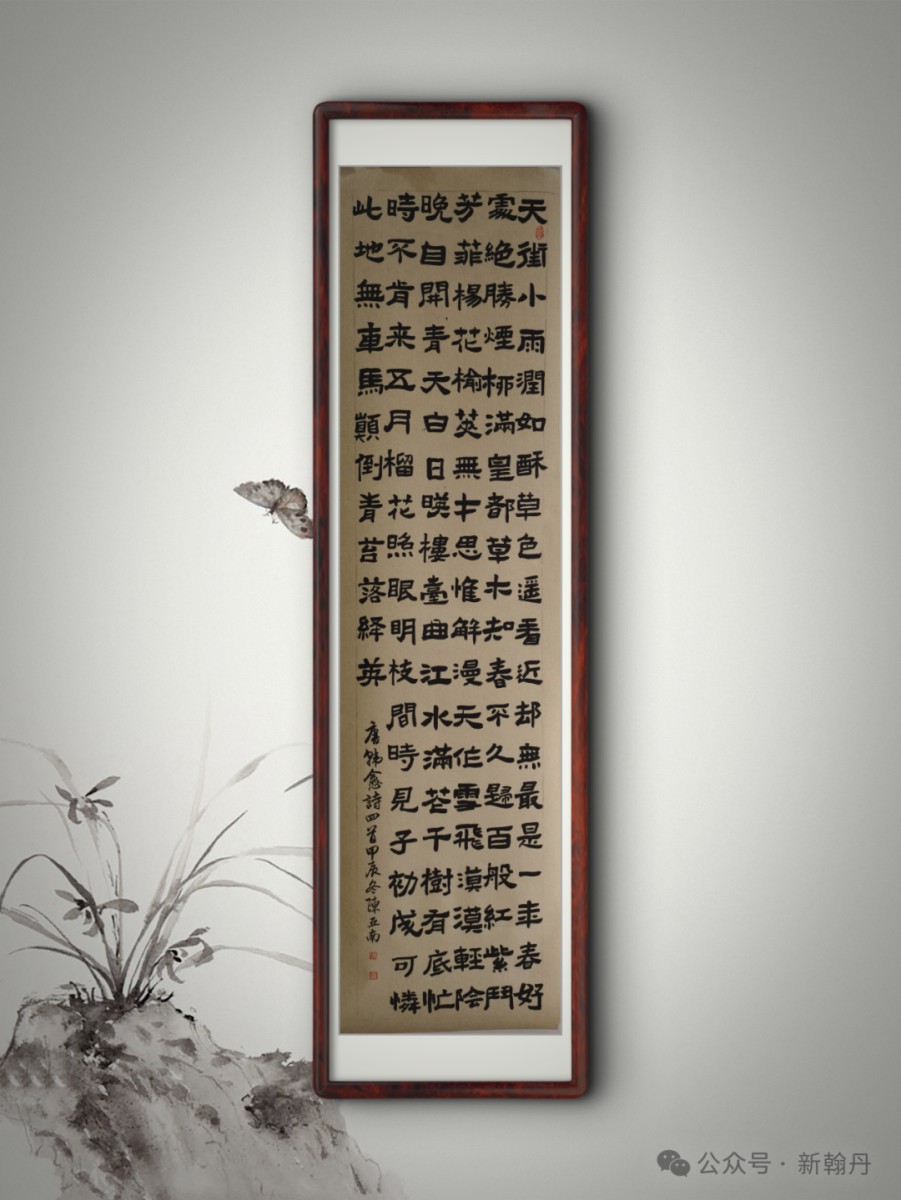 天街小雨潤如酥草色遥看近却無最是一年春好
處絕勝煙柳滿皇都草木知春不久歸百般紅紫鬥
芳菲楊花榆莢無才思惟解漫天作雪飛漠漠輕陰
晚自開青天白日暎樓臺曲江水滿花千樹有底忙
時不肯来五月榴花照眼明枝間時見子初成可憐
此地無車馬顛倒青苔落絳英
唐韓愈詩四首甲辰冬陳亚南
公众号·新翰丹